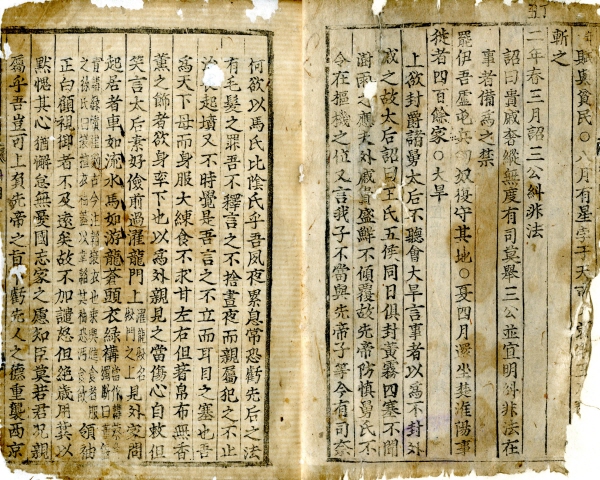 賑與貧民○八月有星孛于天
斬之
二年春三月詔三公糾非法
詔曰貴戚奢縱無度有司莫舉三公並宜明糾非法在
事者備為之禁
罷伊吾盧屯兵匈奴復守其地○夏四月還坐楚淮陽事
徙者四百餘家○大旱
上欲封爵諸舅太后不聽會大旱言事者以為不封外
戚之故太后詔曰王氏五侯同日俱封黃霧四塞不聞
澍雨之應夫外戚貴盛鮮不傾覆故先帝防慎舅氏不
令在樞機之位又言我子不當與先帝子等今有司奈
何欲以馬氏比陰氏乎吾夙夜累息常恐虧先后之法
有毛髮之罪吾不釋言之不捨晝夜而親屬犯之不止
治喪起墳又不時覺是吾言之不立而耳目之塞也吾
為天下母而身服大練食不求甘左右但著帛布無香
薰之飾者欲身率下也以為外親見之當傷心自敕但
笑言太后素好儉前過濯龍門上濯龍苑名門之上見外家問
起居者車如流水馬如游龍蒼頭衣緑褠領袖
正白顧視御者不及遠矣故不加譴怒但絶歲用冀以
默愧其心猶懈怠無憂國忘家之慮知臣莫若君況親
屬乎吾豈可上負先帝之旨下虧先人之德重襲西京